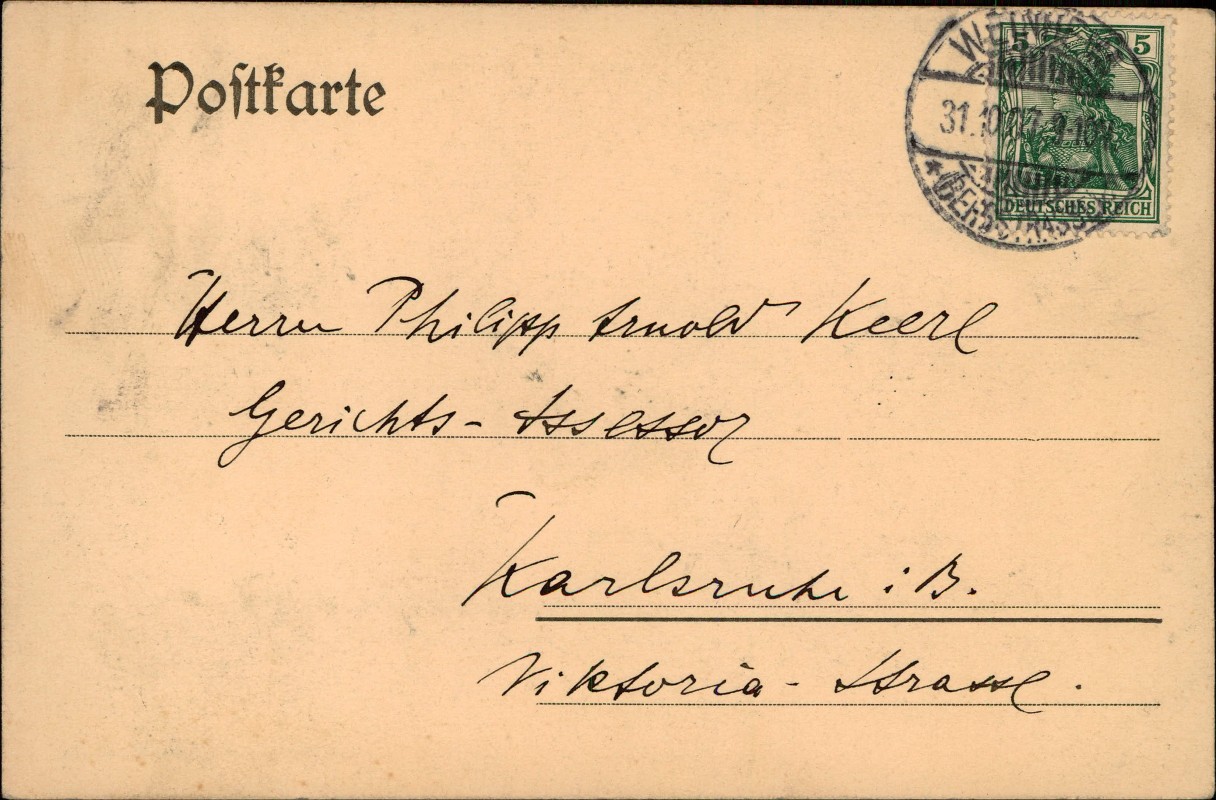 Postkarte
5 5
31.10.
(BERGSTRASSE)
DEUTSCHES REICH
Herrn Philipp Arnold Keerl
Gerichts-Assessor
Karlsruhe i. B.
Viktoria-Strasse.